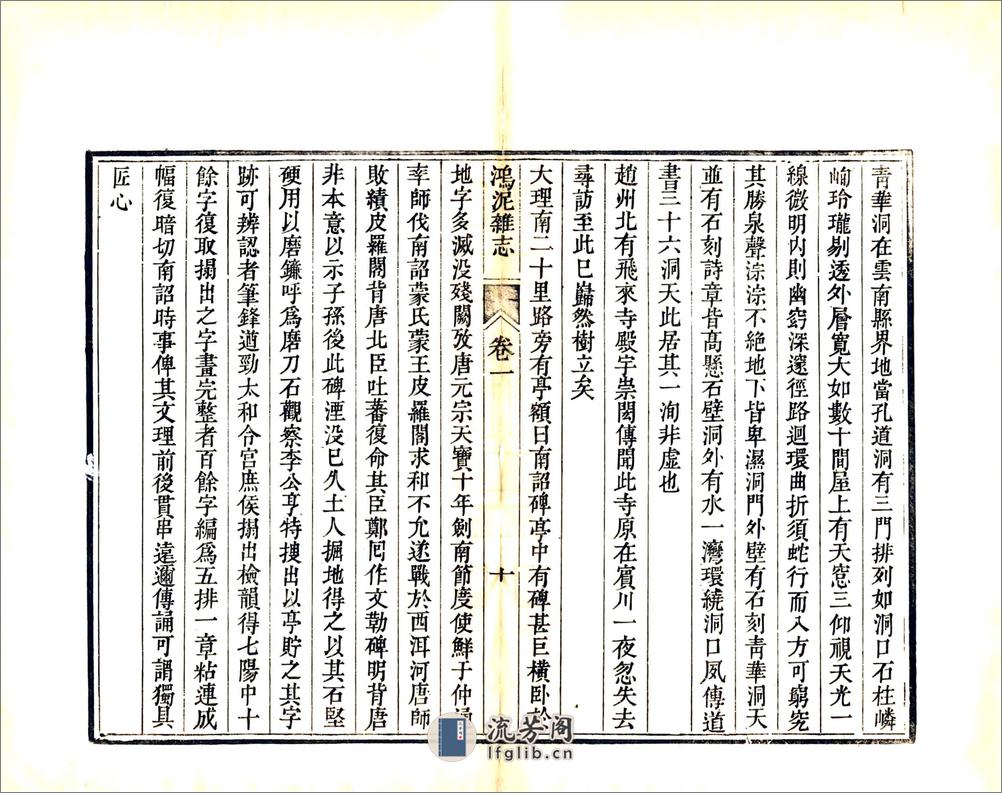 青華洞在雲南縣界地當孔道洞有三門排列如洞口石柱嶙
峋玲瓏剔透外層寬大如數十間屋上有天窓三仰視天光一
線微明内則幽窈深邃徑路迴環曲折須蛇行而入方可窮究
其勝泉聲淙淙不絶地下皆卑濕洞門外壁有石刻靑華洞天
並有石刻詩章皆高懸石壁洞外有水一灣環繞洞口夙傳道
書三十六洞天此居其一洵非虛也
趙州北有飛來寺殿宇崇閎傳聞此寺原在賓川一夜忽失去
尋訪至此巳巋然樹立矣
大理南二十里路旁有亭額曰南詔碑亭中有碑甚巨橫臥於
鴻泥雜志
卷一
十
地字多滅没殘闕攷唐元宗天寶十年劍南節度使鮮于仲通
率師伐南詔蒙氏蒙王皮羅閣求和不允遂戰於西洱河唐師
敗績皮羅閣背唐北臣吐蕃復命其臣鄭回作文勒碑明背唐
非本意以示子孫後此碑湮没巳久土人掘地得之以其石堅
硬用以磨鐮呼爲磨刀石觀察李公亨特捜出以亭貯之其字
跡可辨認者筆鋒遒勁太和令宫庶侯搨出檢韻得七陽中十
餘字復取搨出之字畫完整者百餘字編爲五排一章粘連成
幅復暗切南詔時事俾其文理前後貫串遠邇傳誦可謂獨具
匠心
流芳阁
lfglib.cn